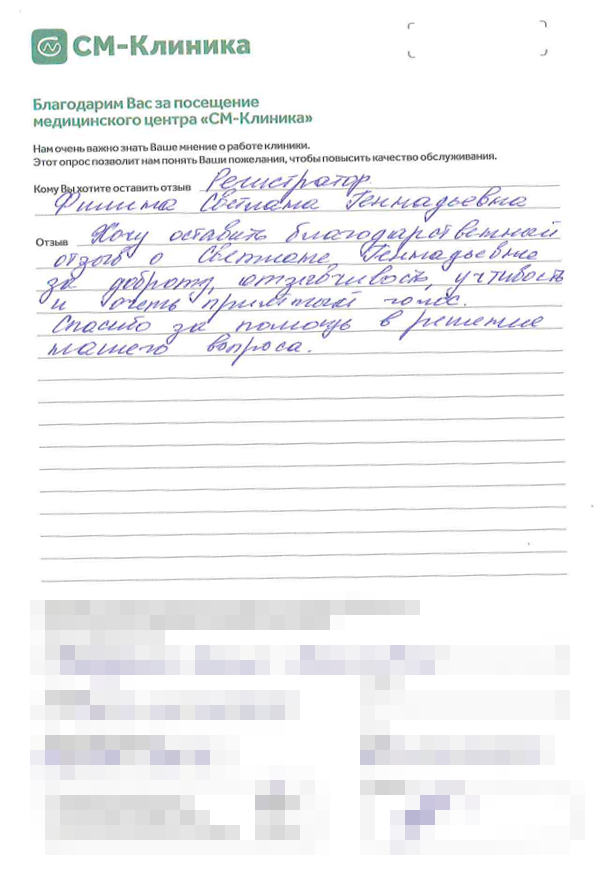 СМ-Клиника
Благодарим Вас за посещение
медицинского центра «СМ-Клиника»
Нам очень важно знать Ваше мнение о работе клиники.
Этот опрос позволит нам понять Ваши пожелания, чтобы повысить качество обслуживания.
Кому Вы хотите оставить отзыв Регистратор
Светлана Геннадьевна
Отзыв Хочу оставить благодарственный
отзыв о Светлане Геннадьевне
за доброту, отзывчивость, учтивость
и очень приятный голос.
Спасибо за помощь в решение
нашего вопроса.